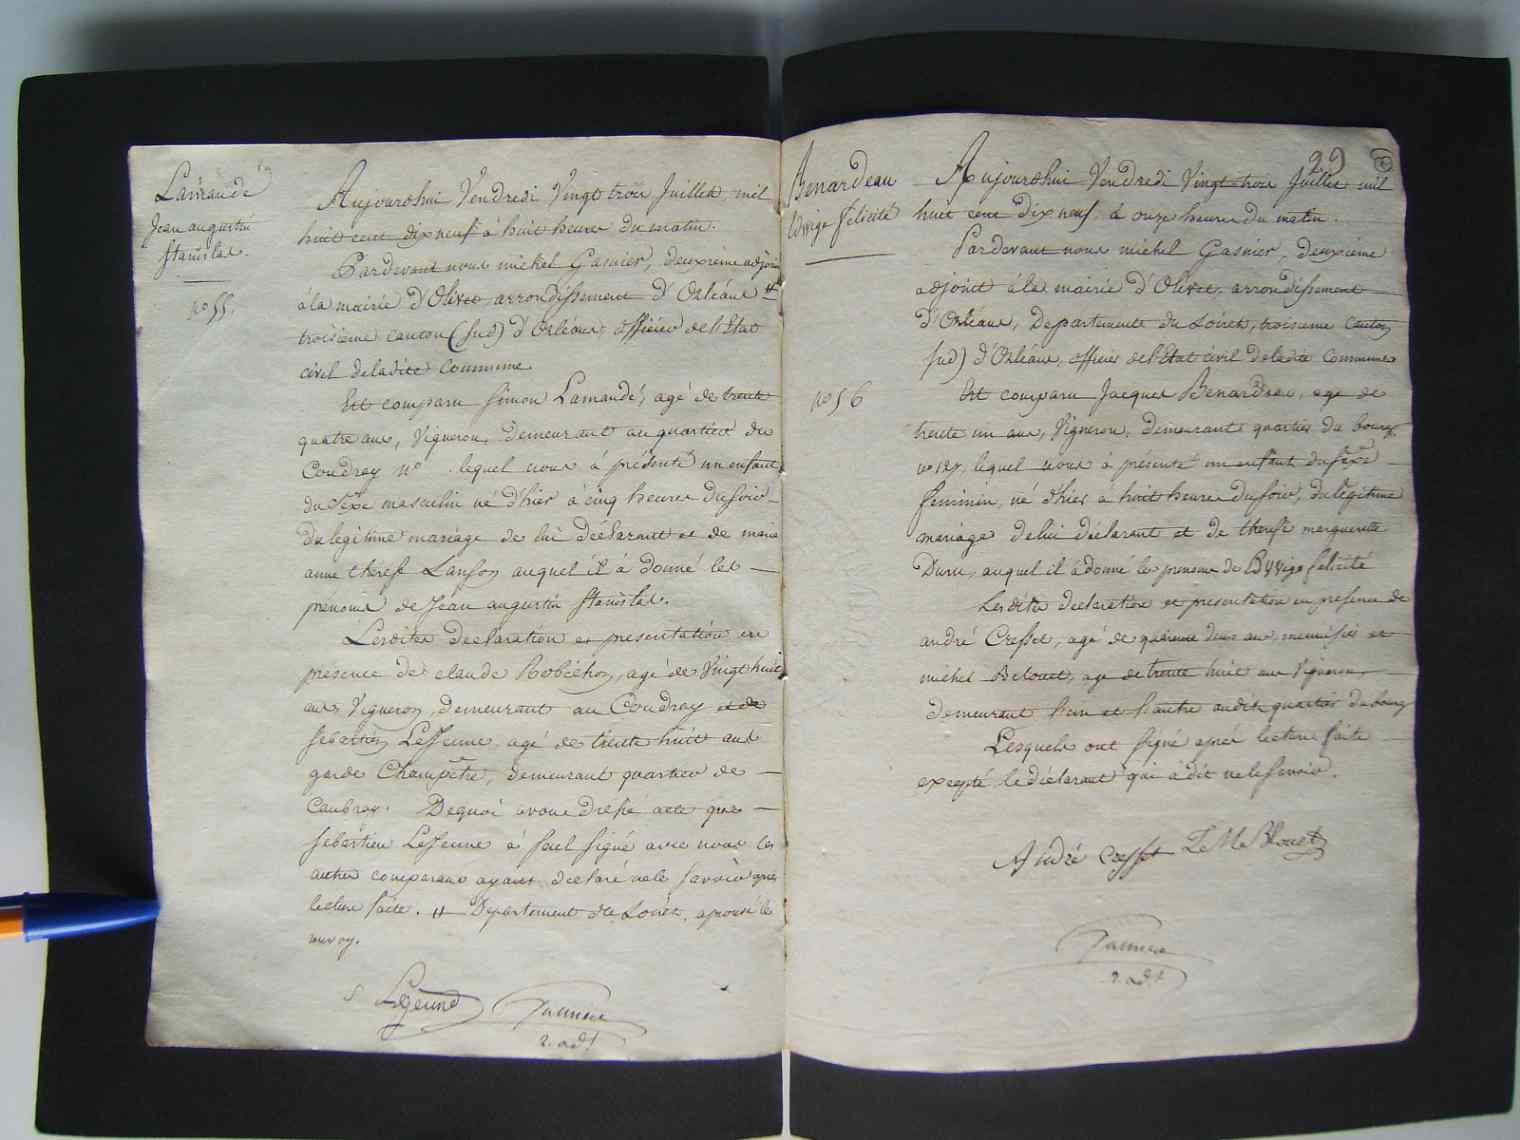 Lamandé
Jean augustin
stanislas.
n° 55.
Aujourdhui Vendredi Vingt trois Juillet, mil
huit cent dix neuf à huit heures du matin.
Pardevant nous michel Gasnier, deuxieme adjoin
à la mairie d'Olivet arrondissement d'Orléans #
troisieme canton (sud) d'Orléans, officier de l'Etat
civil deladite commune.
Est comparu simon Lamandé, agé de trente
quatre ans, Vigneron, demeurant au quartier du
Coudray n° . lequel nous à présenté un enfant
du sexe masculin né d'hier à cinq heures du soir
du legitime mariage de lui déclarant et de marie
anne therese Lanson auquel il à donné les
prénoms de Jean augustin stanislas.
Lesdites declaration et presentation en
présence de claude Robichon, agé de Vingt huit
ans, Vigneron, demeurant au Coudray et de
sebastien LeJeune agé de trente huit ans
garde Champêtre, demeurant quartier de
Caubray. Dequoi avons dressé acte que
sebastien LeJeune à seul signé avec nous les
autres comparans ayant declaré ne le savoir après
lecture faite. # Departement du Loiret, aprouvé le
renvoy.
S Lejeune
2. adj.t
22
Benardeau
Edvige felicité
n° 56
Aujourdhui Vendredi Vingt trois Juillet mil
huit cent Dix neuf, à onze heures du matin.
Pardevant nous michel Gasnier, deuxieme
adjoint à la mairie d'Olivet, arrondissement
d'Orléans, Departement du Loiret, troisieme canton
sud) d'Orléans, officier de l'Etat civil deladite commune
Est comparu Jacques Benardeau, age de
trente un ans, Vigneron, demeurant quartier du bourg
lequel nous à présenté un enfant du sexe
feminin, né d'hier à huit heures du soir, du légitime
mariage de lui déclarant et de therese marguerite
Duru, auquel il à donné le prenoms de felicité
Lesdites declaration et presentation en presence de
andré Cresset, agé de quarante deux ans, menuisier et
michel Belouet, age de trente huit ans Vigneron,
demeurant l'un et l'autre audit quartier du bourg
Lesquels ont signé après lecture faite
excepté le déclarant qui à dit ne le savoir.
André Cresset
2. adj.t